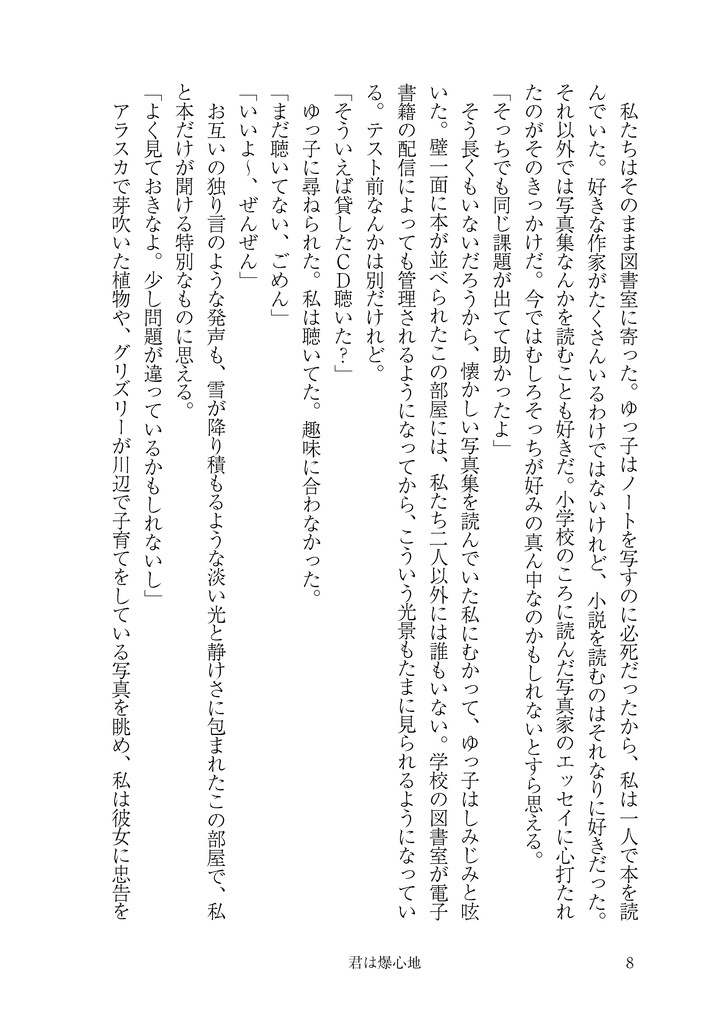 私たちはそのまま図書室に寄った。ゆっ子はノートを写すのに必死だったから、私は一人で本を読
んでいた。好きな作家がたくさんいるわけではないけれど、小説を読むのはそれなりに好きだった。
それ以外では写真集なんかを読むことも好きだ。小学校のころに読んだ写真家のエッセイに心打たれ
たのがそのきっかけだ。今ではむしろそっちが好みの真ん中なのかもしれないとすら思える。
「そっちでも同じ課題が出てて助かったよ」
　そう長くもいないだろうから、懐かしい写真集を読んでいた私にむかって、ゆっ子はしみじみと呟
いた。壁一面に本が並べられたこの部屋には、私たち二人以外には誰もいない。学校の図書室が電子
書籍の配信によっても管理されるようになってから、こういう光景もたまに見られるようになってい
る。テスト前なんかは別だけれど。
「そういえば貸したＣＤ聴いた？」
　ゆっ子に尋ねられた。私は聴いてた。趣味に合わなかった。
「まだ聴いてない、ごめん」
「いいよ～、ぜんぜん」
　お互いの独り言のような発声も、雪が降り積もるような淡い光と静けさに包まれたこの部屋で、私
と本だけが聞ける特別なものに思える。
「よく見ておきなよ。少し問題が違っているかもしれないし」
　アラスカで芽吹いた植物や、グリズリーが川辺で子育てをしている写真を眺め、私は彼女に忠告を
君は爆心地
8